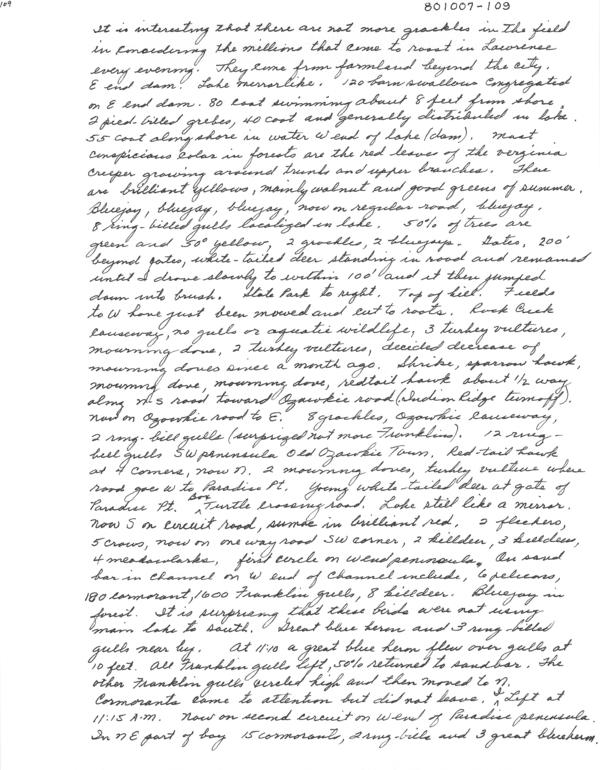 109
801007-109
It is interesting that there are not more grackles in the field
in considering the millions that come to roost in Lawrence
every evening. They come from farmland beyond the city.
E end dam. Lake mirrorlike. 120 barn swallows congregated
on E end dam. 80 coot swimming about 8 feet from shore,
2 pied-billed grebes, 40 coot and generally distributed in lake.
55 coot along shore in water W end of lake (dam). Most
conspicious color in forests are the red leaves of the virginia
creeper growing around trunks and upper branches. There
are brilliant yellows, mainly walnut and good greens of summer.
Bluejay, bluejay, bluejay, now on regular road, bluejay.
8 ring-billed gulls localized in lake. 50% of trees are
green and 50° yellow, 2 grackles, 2 bluejays. Gates, 200'
beyond gates, white-tailed deer standing in road and remained
until I drove slowly to within 100' and it then jumped
down into brush. State Park to right. Top of hill. Fields
to W have just been mowed and cut to roots. Rock Creek
causeway, no gulls or aquatic wildlife, 3 turkey vultures,
mourning dove, 2 turkey vultures, decided decrease of
mourning doves since a month ago. Shrike, sparrow hawk,
mourning dove, mourning dove, redtail hawk about 1/2 way
along N-S road toward Ozawkie road (Indian Ridge turnoff).
Now on Ozawkie road to E. 8 grackles, Ozawkie Causeway,
2 ring-bill gulls (surprized not more Franklins). 12 ring-
bill gulls SW peninsula Old Ozawkie Town, Red-tail hawk
at 4 corners, now N. 2 mourning doves, turkey vulture where
road goes W to Paradise Pt. Young white-tailed deer at gate of
Paradise Pt. Box Turtle crossing road. Lake still like a mirror.
Now S on circuit road, sumac in brilliant red. 2 flickers,
5 crows, now on one way road SW corner, 2 killdeer, 3 killdeer,
4 meadowlarks, first circle on W end peninsula. On sand
bar in channel on W end of channel include, 6 pelicans,
180 cormorant, 1600 Franklin gulls, 8 killdeer. Bluejay in
forest. It is surprising that these birds were not using
main lake to south. Great blue heron and 3 ring-billed
gulls near by. At 11:10 a great blue heron flew over gulls at
10 feet. All Franklin gulls left, 50% returned to sandbar. The
other Franklin gulls circled high and then moved to N.
Cormorants came to attention but did not leave. I Left at
11:15 A.M. Now on second circuit on W end of Paradise peninsula.
In NE part of bay 15 cormorants, 2 ring-bills and 3 great blue heron.